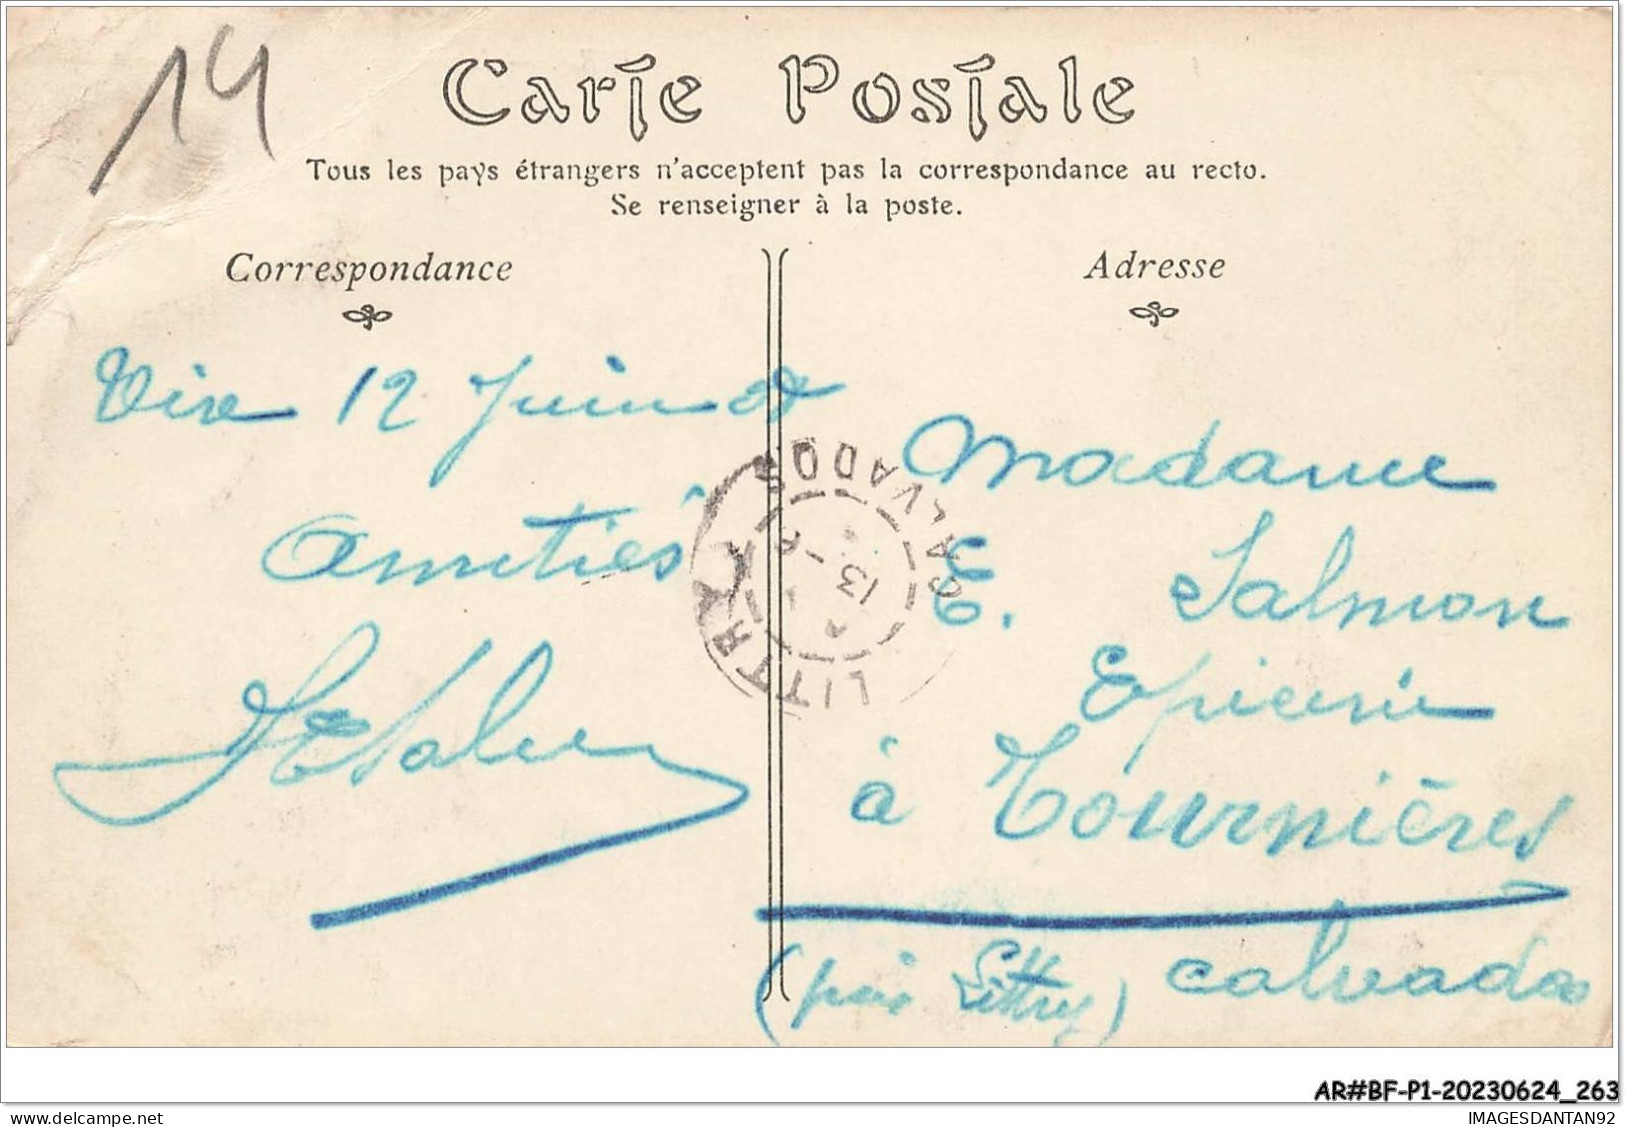 14
Carte Postale
Tous les pays étrangers n'acceptent pas la correspondance au recto.
Se renseigner à la poste.
Correspondance
Vire 12 Juin
Amitiés
Adresse
Madame
E. Salmon
Epicerie
à Tournières
(près Littry) Calvados
LITTRY
CALVADOS
13 - 6
AR#BF-P1-20230624_263
IMAGESDANTAN92